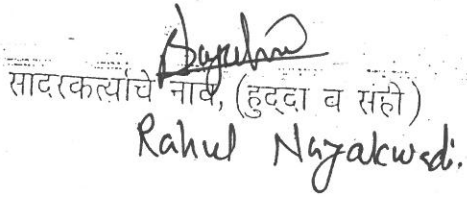 सादरकर्त्याचे नाव, (हुद्दा व सही)
Rahul Nayakwadi.